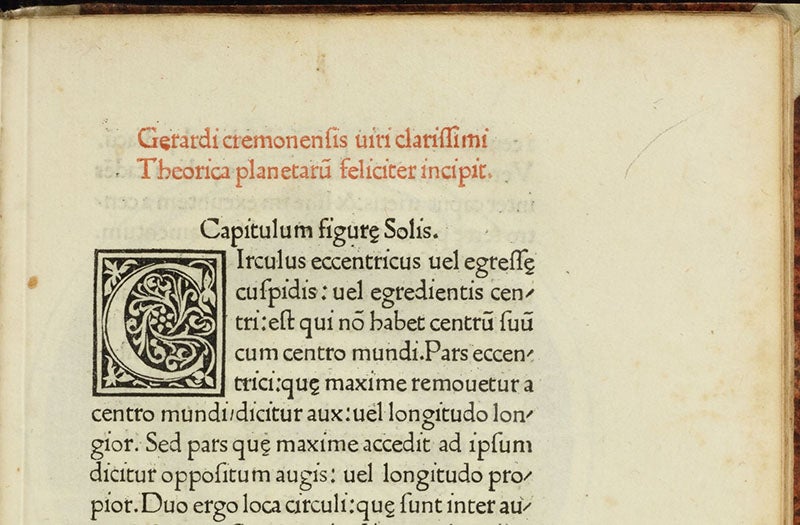 Gęrardi cremonensis uiri clariſſimi
Theorica planetarū feliciter incipit.
Capitulum figurę Solis.
CIrculus eccentricus uel egreſſę
cuſpidis: uel egredientis cen⸗
tri: eſt qui nō habet centrū ſuū
cum centro mundi. Pars eccen⸗
trici: quę maxime remouetur a
centro mundi/ dicitur aux: uel longitudo lon⸗
gior. Sed pars quę maxime accedit ad ipſum
dicitur oppoſitum augis: uel longitudo pro⸗
pior. Duo ergo loca circuli: quę ſunt inter au⸗